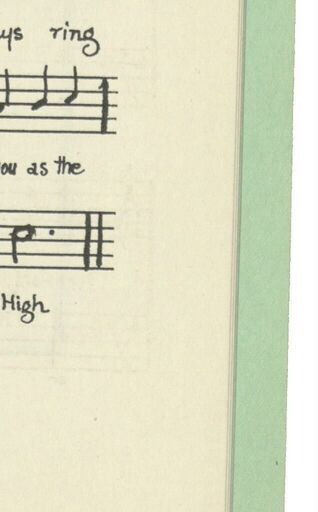 ys ring
ou as the
High